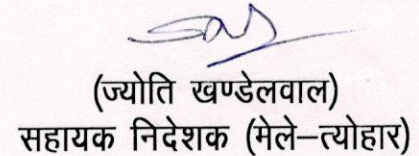 (ज्योति खण्डेलवाल)
सहायक निदेशक (मेले–त्योहार)